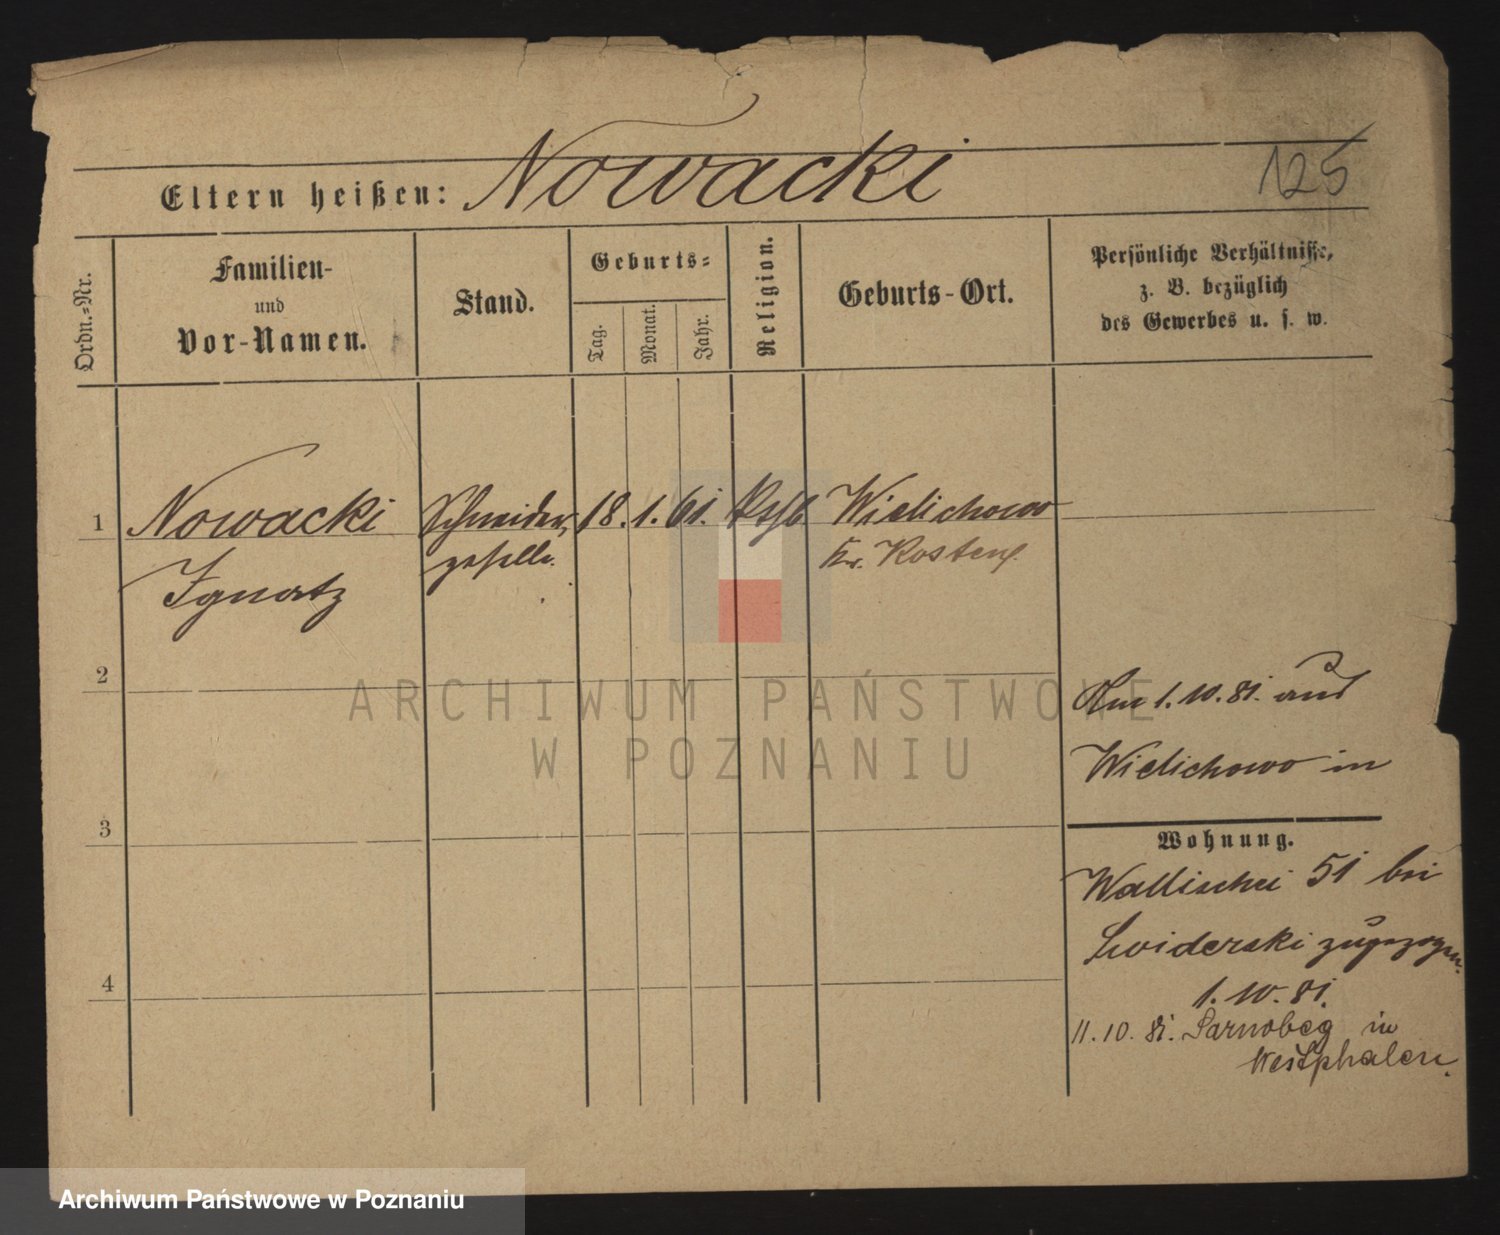 125
Eltern heißen: Nowacki
Ordn.=Nr.
Familien-
und
Vor-Namen.
Stand.
Geburts=
Tag.
Monat.
Jahr.
Religion.
Geburts-Ort.
Persönliche Verhältnisse,
z. B. bezüglich
des Gewerbes u. s. w.
1 Nowacki Schneider, 18. 1. 61. Wielichowo
Ignatz geselle. Kr. Kosten
2
Am 1.10.81. aus
Wielichowo in
3
Wohnung.
Wallischei 51 bei
Swiderski zugezogen.
4
1.10.81.
11.10.81. in
Westphalen.
ARCHIWUM PAŃSTWOWE
W POZNANIU
Archiwum Państwowe w Poznaniu